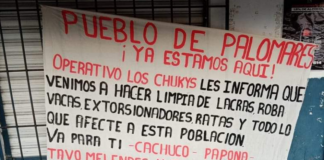 PUEBLO DE PALOMARES
¡YA ESTAMOS AQUI!
OPERATIVO LOS CHUKYS LES INFORMA QUE
VENIMOS A HACER LIMPIA DE LACRAS ROBA
VACAS, EXTORSIONADORES, RATAS Y TODO LO
QUE AFECTE A ESTA POBLACION
VA PARA TI -CACHUCO- PAPONA-
TAVO MELENDEZ